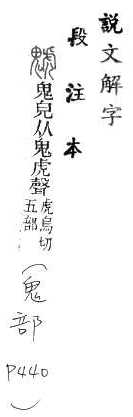 說文解字
段注本
䰧鬼皃从鬼虎聲
虎烏切
五部
(鬼部 P440)